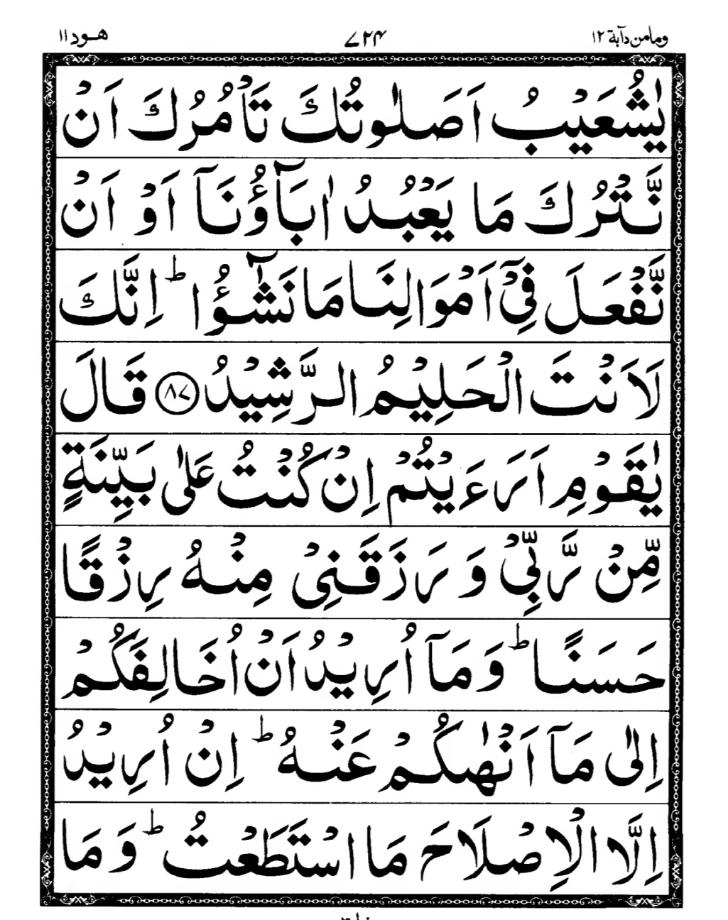 ومامن دآبة ١٢ ٧٢٤ هود ١١
يٰشُعَيْبُ اَصَلٰوتُكَ تَاْمُرُكَ اَنْ
نَّتْرُكَ مَا يَعْبُدُ اٰبَآؤُنَآ اَوْ اَنْ
نَّفْعَلَ فِيْٓ اَمْوَالِنَا مَا نَشٰٓؤُا ؕ اِنَّكَ
لَاَنْتَ الْحَلِيْمُ الرَّشِيْدُ ﴿٨٧﴾ قَالَ
يٰقَوْمِ اَرَءَيْتُمْ اِنْ كُنْتُ عَلٰى بَيِّنَةٍ
مِّنْ رَّبِّيْ وَ رَزَقَنِيْ مِنْهُ رِزْقًا
حَسَنًا ؕ وَ مَآ اُرِيْدُ اَنْ اُخَالِفَكُمْ
اِلٰى مَآ اَنْهٰىكُمْ عَنْهُ ؕ اِنْ اُرِيْدُ
اِلَّا الْاِصْلَاحَ مَا اسْتَطَعْتُ ؕ وَ مَا